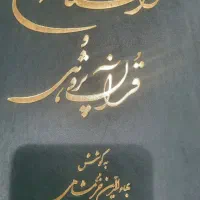 و
قرآن پژوهی
به کوشش
بهاءالدین خرمشاهی